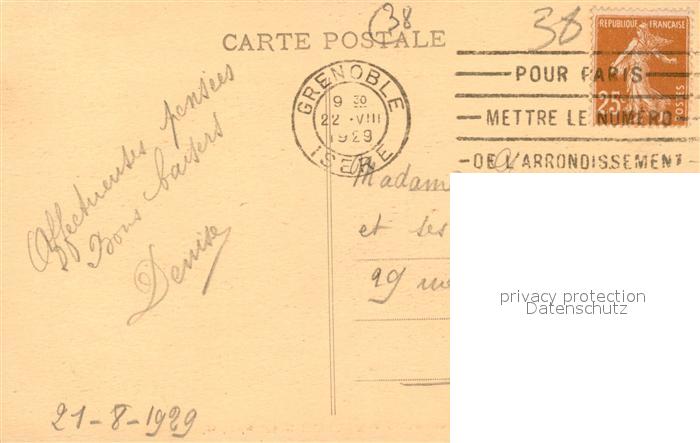 38
38
CARTE POSTALE
REPUBLIQUE FRANÇAISE
25
POSTES
GRENOBLE
9 30
22 · VIII
1929
ISERE
POUR PARIS
METTRE LE NUMERO
DE L'ARRONDISSEMENT
Affectueuses pensées
Bons baisers
Denise
21-8-1929
Madame
et ses
29 rue
privacy protection
Datenschutz